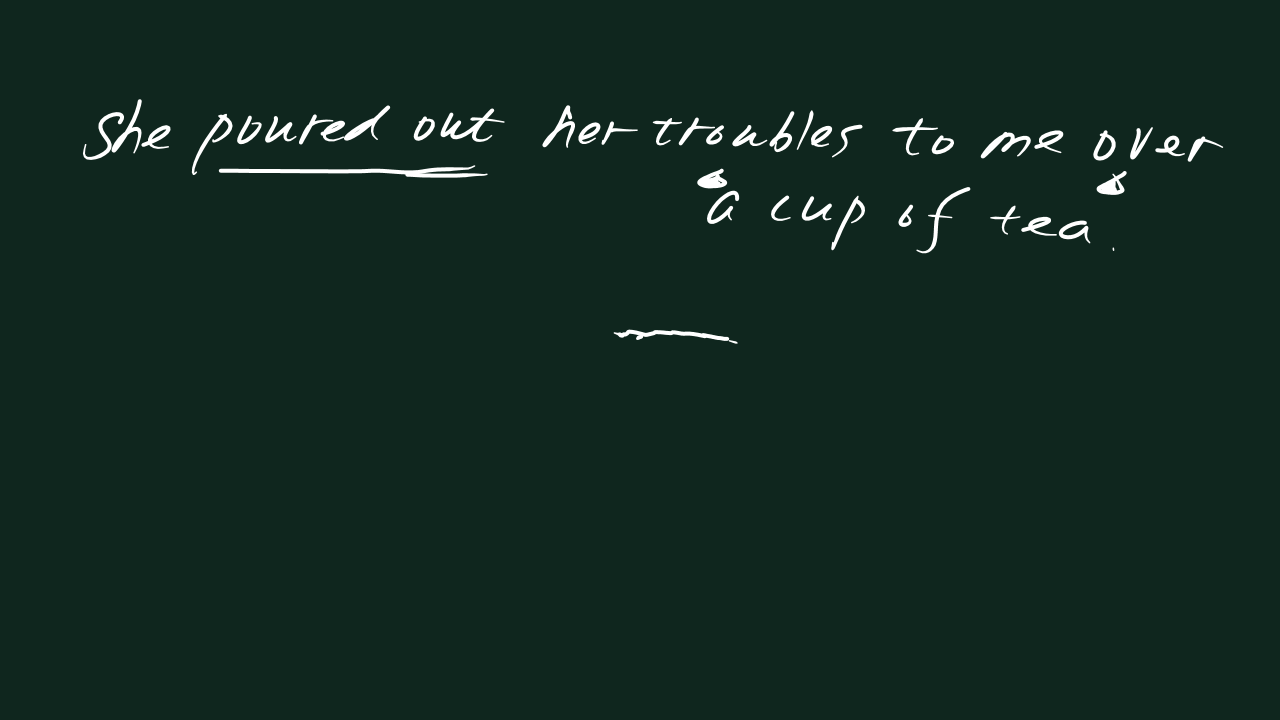 She poured out her troubles to me over
a cup of tea.